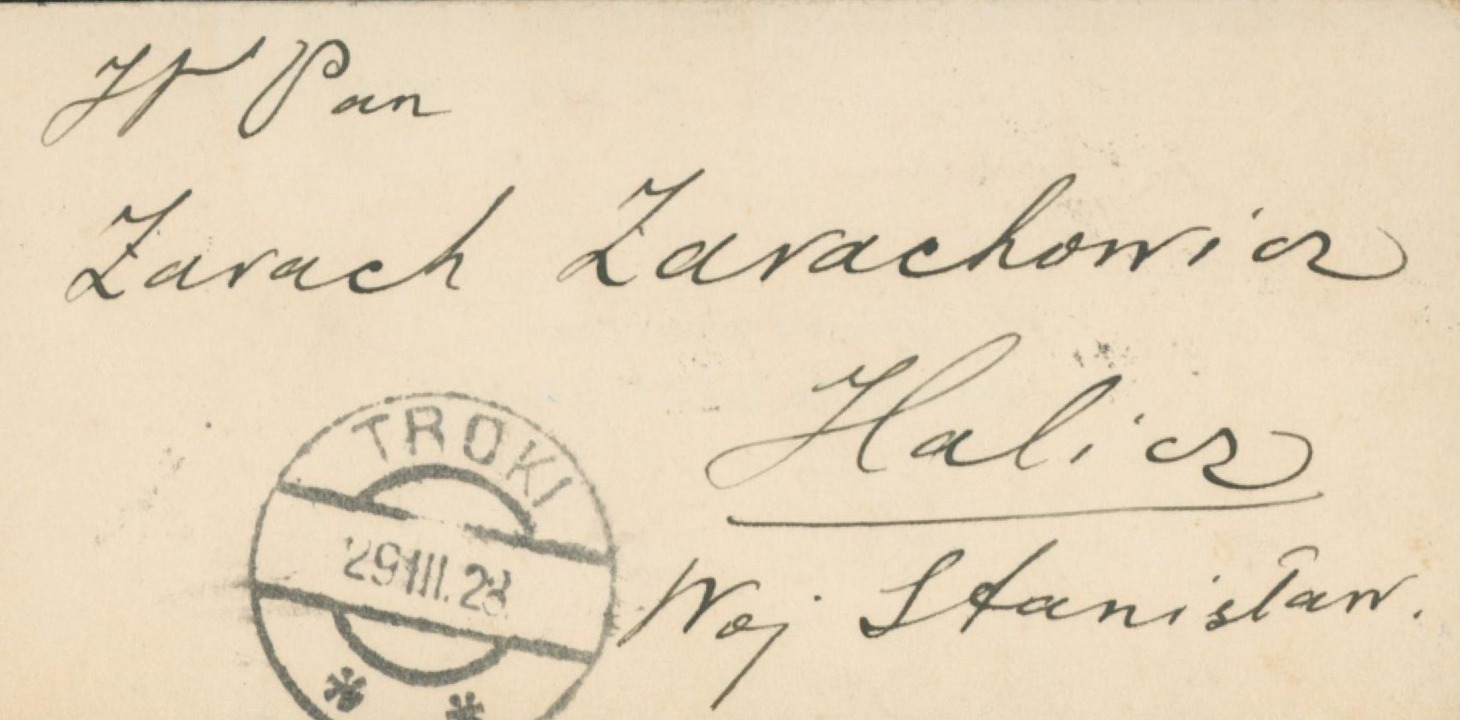 W Pan
Zarach Zarachowicz
Halicz
TROKI
29 III. 28
Woj Stanisław.